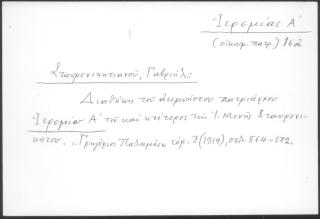 Ἱερεμίας Α΄
(οἰκουμ. πατρ.) 16 αἰ.
Σταυρονικητιανοῦ, Γαβριήλ:
Διαθήκη τοῦ ἀειμνήστου πατριάρχου
Ἱερεμίου Α΄ τοῦ καὶ κτίτορος τῆς Ἱ. Μονῆς Σταυρονι-
κήτου. „Γρηγόριος Παλαμᾶς" τόμ. 3 (1919), σελ. 564-572.